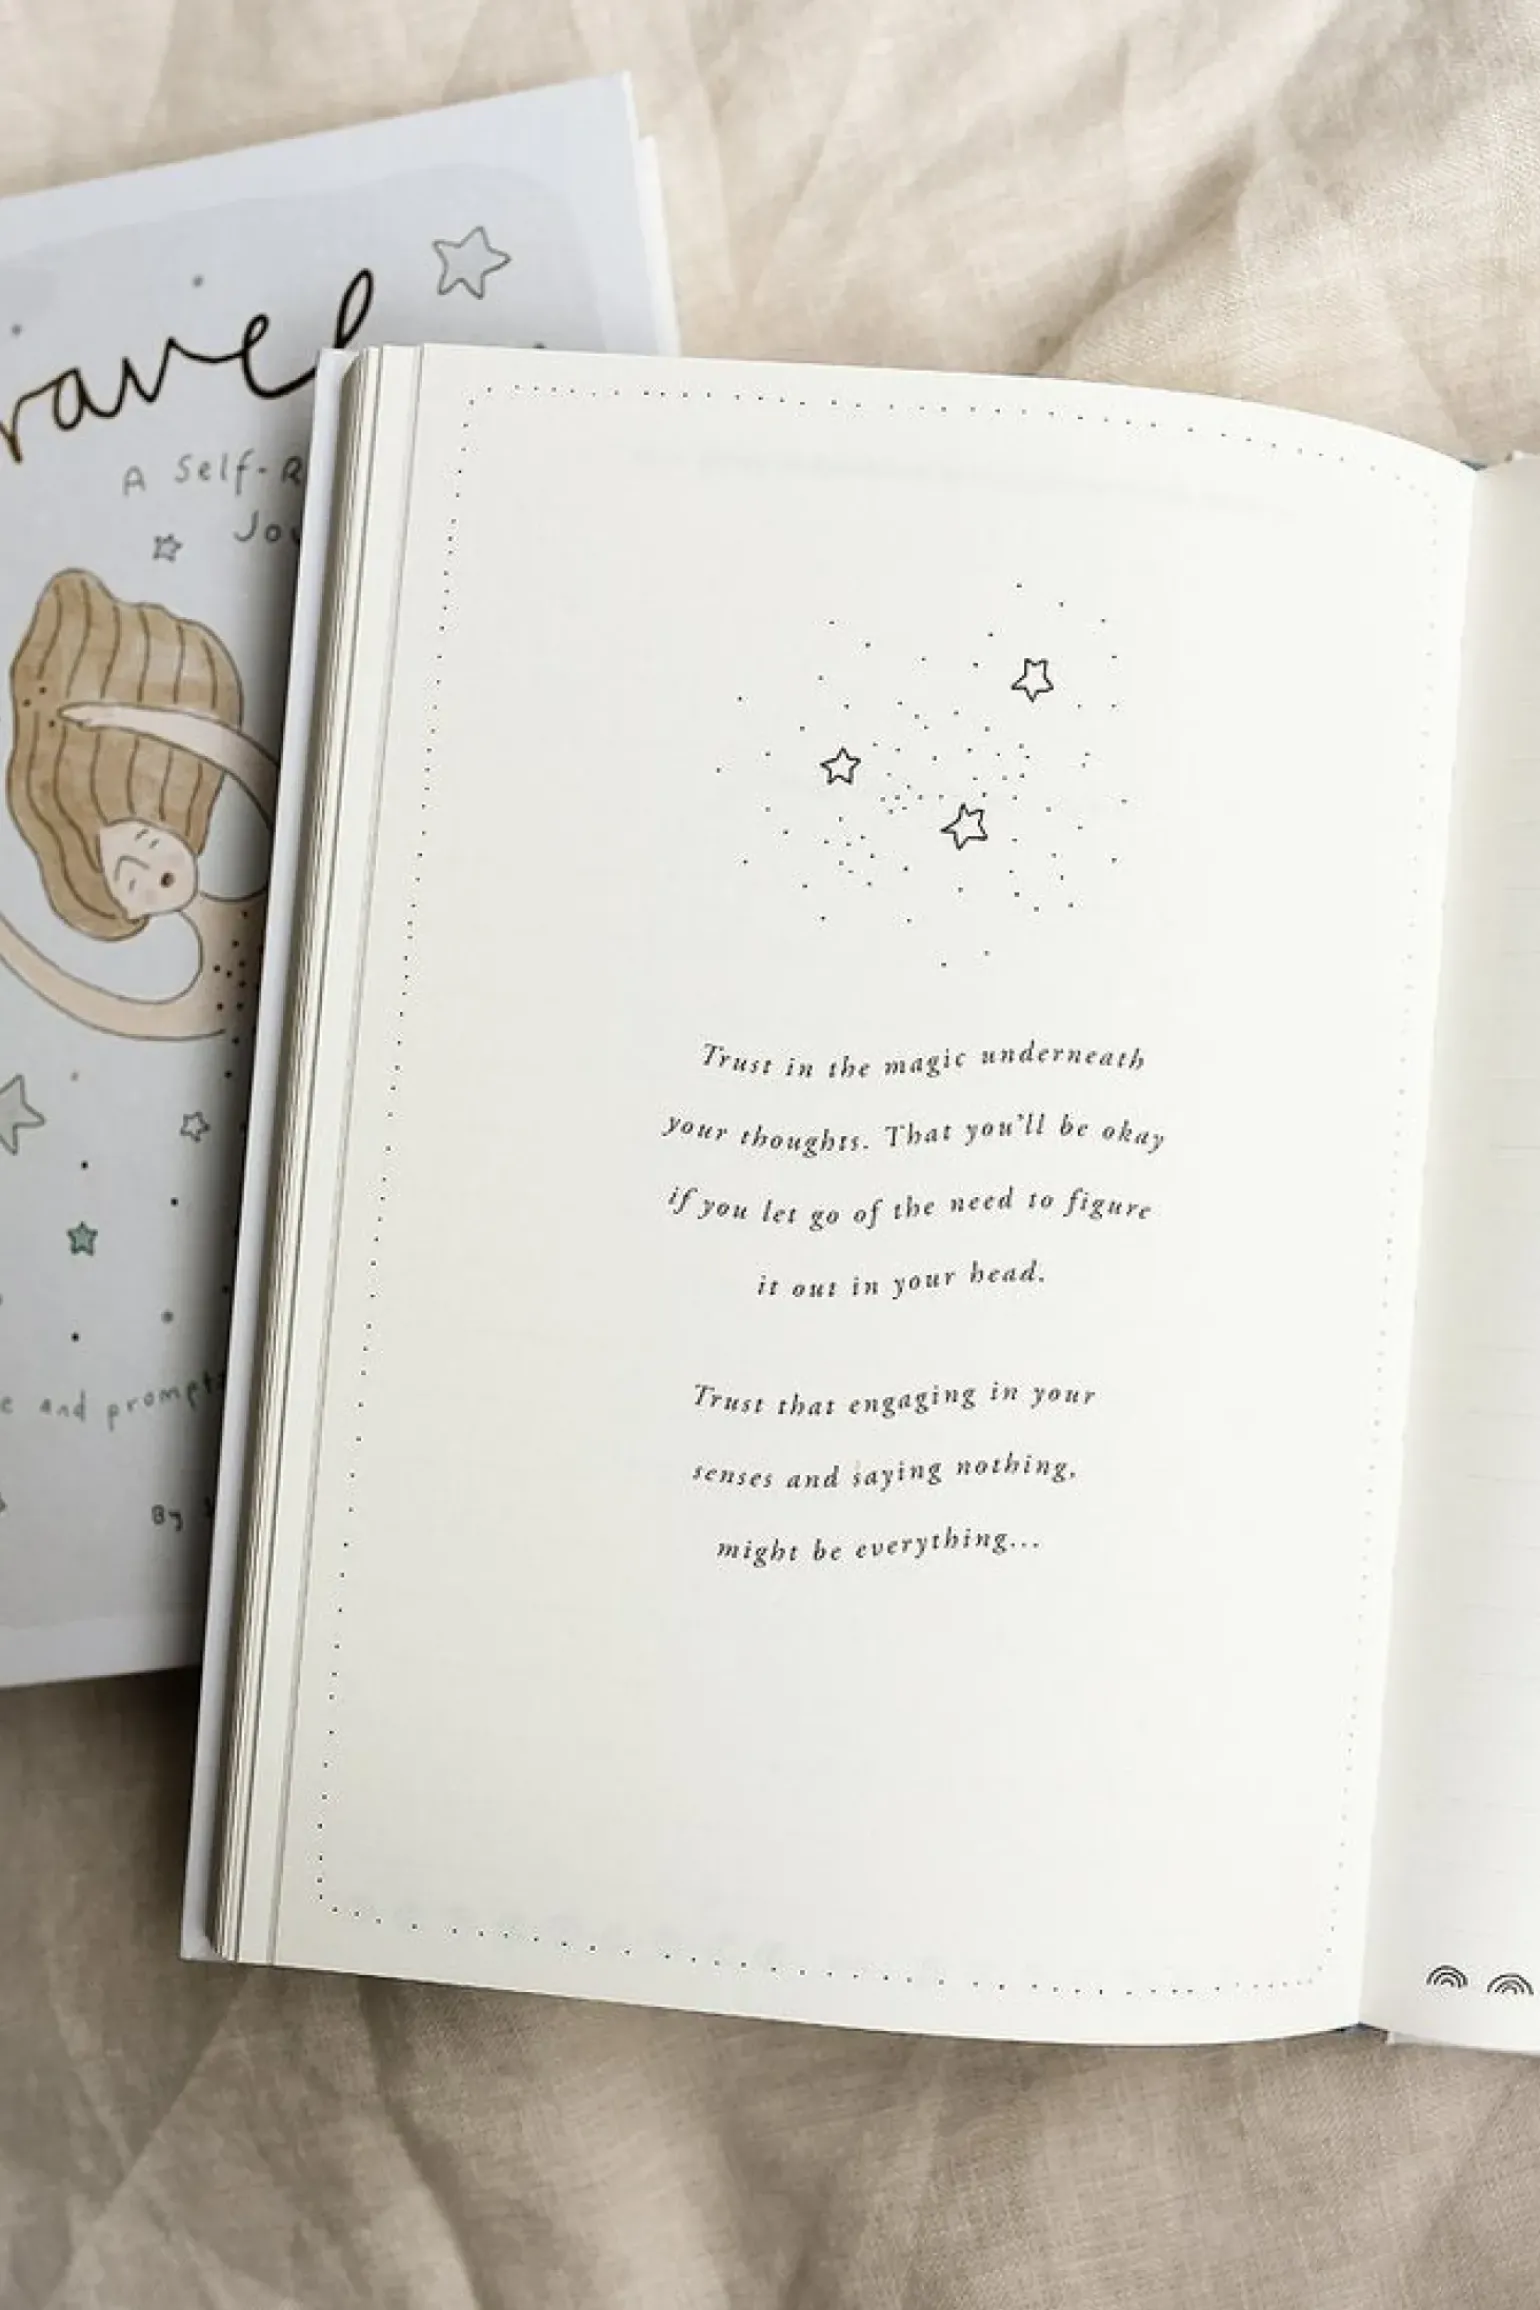 ravel
A Self-R
Jou
Trust in the magic underneath
your thoughts. That you'll be okay
if you let go of the need to figure
it out in your head.
Trust that engaging in your
senses and saying nothing,
might be everything...
e and prompts
By